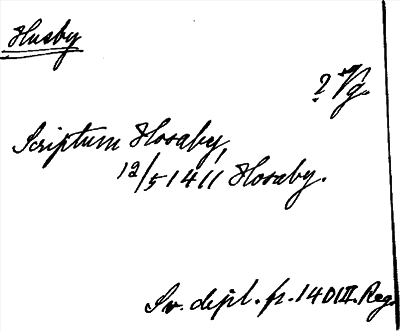 Husby
? Vg.
Scriptum Horaby,
12/5 1411 Horaby.
Sv. dipl. fr. 1401 II. Reg.